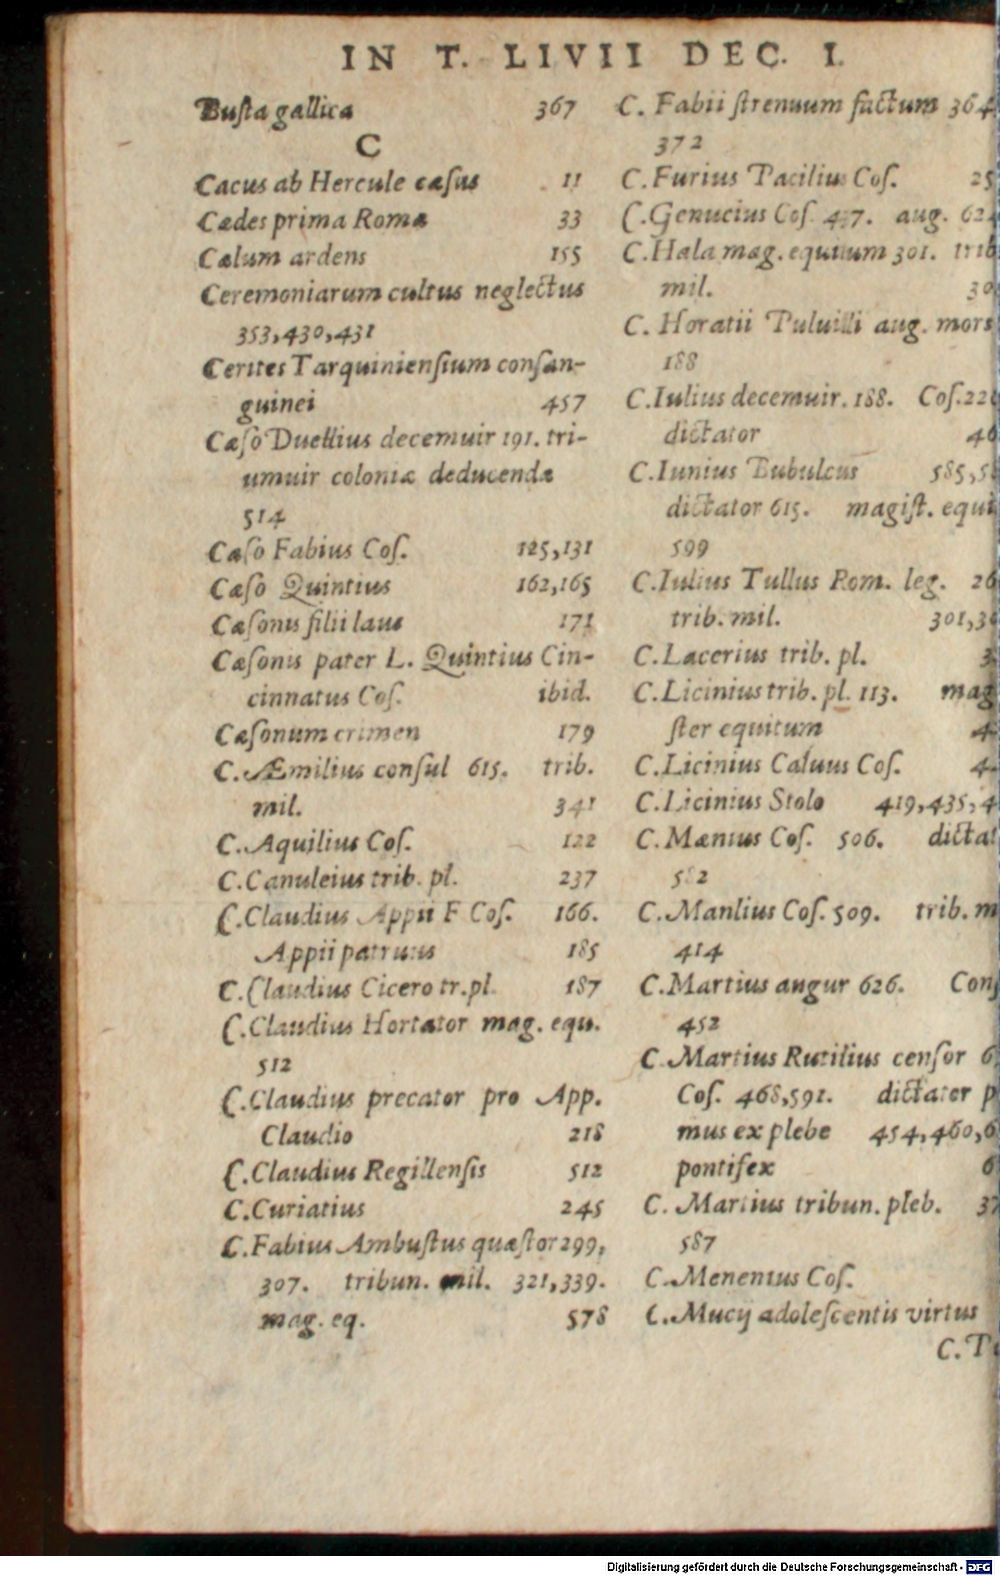 IN T. LIVII DEC. I.
Busta gallica 367
C
Cacus ab Hercule cæsus 11
Cædes prima Romæ 33
Cælum ardens 155
Ceremoniarum cultus neglectus
353,430,431
Cerites Tarquiniensium consan-
guinei 457
Cæso Duellius decemuir 191. tri-
umuir coloniæ deducendæ
514
Cæso Fabius Cos. 125,131
Cæso Quintius 162,165
Cæsonis filii laus 171
Cæsonis pater L. Quintius Cin-
cinnatus Cos. ibid.
Cæsonum crimen 179
C. Æmilius consul 615. trib.
mil. 341
C. Aquilius Cos. 122
C. Canuleius trib. pl. 237
C. Claudius Appii F Cos. 166.
Appii patruus 185
C. Claudius Cicero tr.pl. 187
C. Claudius Hortator mag. equ.
512
C. Claudius precator pro App.
Claudio 218
C. Claudius Regillensis 512
C. Curiatius 245
C. Fabius Ambustus quæstor 299,
307. tribun. mil. 321,339.
mag. eq. 578
C. Fabii strenuum factum 364
372
C. Furius Pacilius Cos. 25
C. Genucius Cos. aug. 624
C. Hala mag. equitum 301. trib
mil. 30
C. Horatii Puluilli aug. mors
188
C. Iulius decemuir. 188. Cos. 220
dictator 40
C. Iunius Bubulcus 585,5
dictator 615. magist. equi
599
C. Iulius Tullus Rom. leg. 26
trib. mil. 301,30
C. Lacerius trib. pl. 3
C. Licinius trib. pl. 113. mag
ster equitum 4
C. Licinius Caluus Cos. 4
C. Licinius Stolo 419,435,4
C. Mænius Cos. 506. dictat
582
C. Manlius Cos. 509. trib. m
414
C. Martius augur 626. Cons
452
C. Martius Rutilius censor 6
Cos. 468,591. dictater p
mus ex plebe 454,460,6
pontifex 6
C. Martius tribun. pleb. 37
587
C. Menenius Cos.
C. Mucij adolescentis virtus
C. T
Digitalisierung gefördert durch die Deutsche Forschungsgemeinschaft - DFG